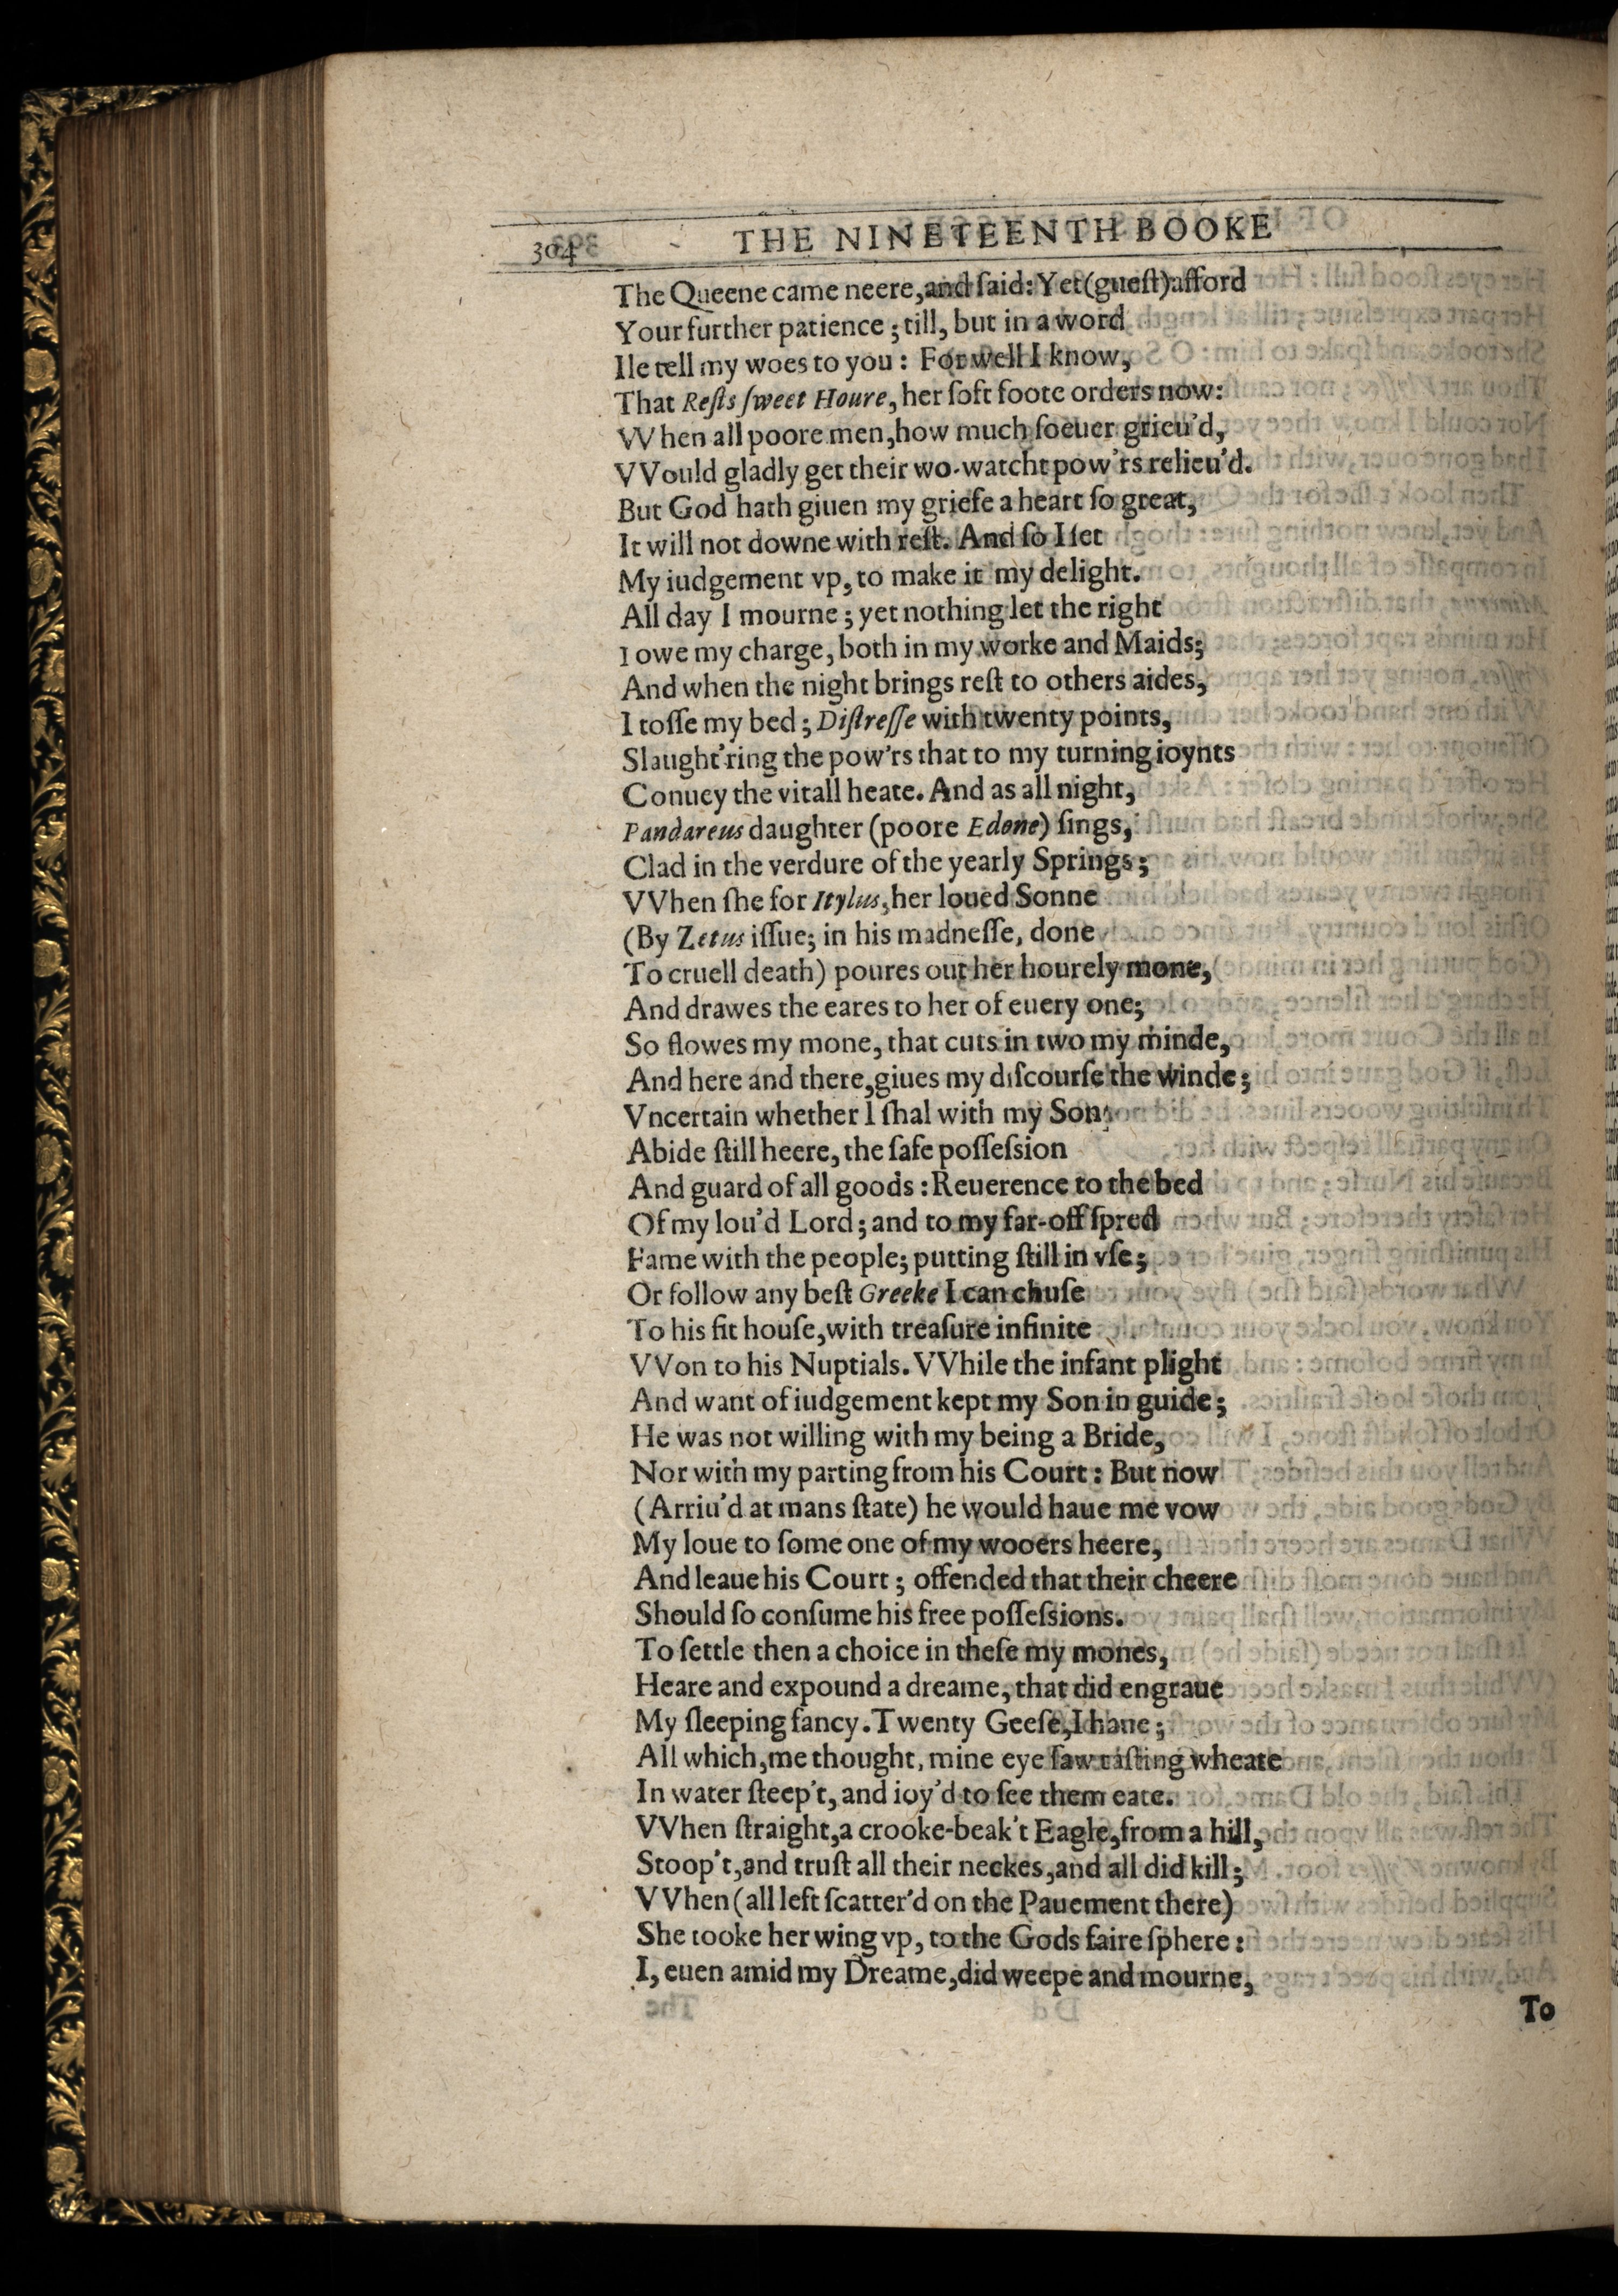 304 THE NINETEENTH BOOKE
The Queene came neere, and ſaid: Yet (gueſt) afford
Your further patience; till, but in a word
Ile tell my woes to you: For well I know,
That Reſts ſweet Houre, her ſoft foote orders now:
VVhen all poore men, how much ſoeuer grieu'd,
VVould gladly get their wo-watcht pow'rs relieu'd.
But God hath giuen my griefe a heart ſo great,
It will not downe with reſt. And ſo I ſet
My iudgement vp, to make it my delight.
All day I mourne; yet nothing let the right
I owe my charge, both in my worke and Maids;
And when the night brings reſt to others aides,
I toſſe my bed; Diſtreſſe with twenty points,
Slaught'ring the pow'rs that to my turning ioynts
Conuey the vitall heate. And as all night,
Pandareus daughter (poore Edone) ſings,
Clad in the verdure of the yearly Springs;
VVhen ſhe for Itylus, her loued Sonne
(By Zetus iſſue; in his madneſſe, done
To cruell death) poures out her hourely mone,
And drawes the eares to her of euery one;
So flowes my mone, that cuts in two my minde,
And here and there, giues my diſcourſe the winde;
Vncertain whether I ſhal with my Son;
Abide ſtill heere, the ſafe poſſeſsion
And guard of all goods: Reuerence to the bed
Of my lou'd Lord; and to my far-off ſpred
Fame with the people; putting ſtill in vſe;
Or follow any beſt Greeke I can chuſe
To his fit houſe, with treaſure infinite
VVon to his Nuptials. VVhile the infant plight
And want of iudgement kept my Son in guide;
He was not willing with my being a Bride,
Nor with my parting from his Court: But now
(Arriu'd at mans ſtate) he would haue me vow
My loue to ſome one of my wooers heere,
And leaue his Court; offended that their cheere
Should ſo conſume his free poſſeſsions.
To ſettle then a choice in theſe my mones,
Heare and expound a dreame, that did engraue
My ſleeping fancy. Twenty Geeſe, I haue;
All which, me thought, mine eye ſaw taſting wheate
In water ſteep't, and ioy'd to ſee them eate.
VVhen ſtraight, a crooke-beak't Eagle, from a hill,
Stoop't, and truſt all their neckes, and all did kill;
VVhen (all left ſcatter'd on the Pauement there)
She tooke her wing vp, to the Gods faire ſphere:
I, euen amid my Dreame, did weepe and mourne,
To